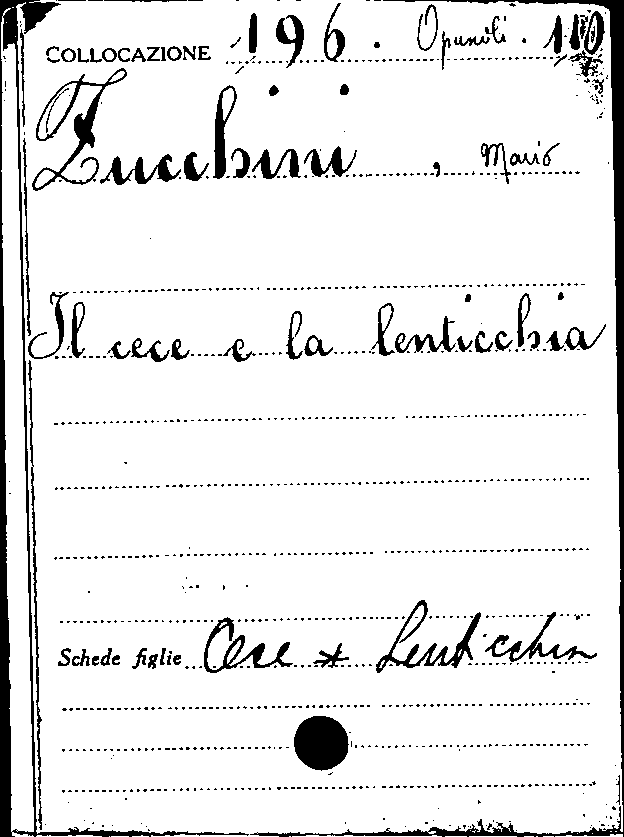 COLLOCAZIONE 196. Opuscoli. 110
Zucchini, Mario
Il cece e la lenticchia
Schede figlie Cece * Lenticchia